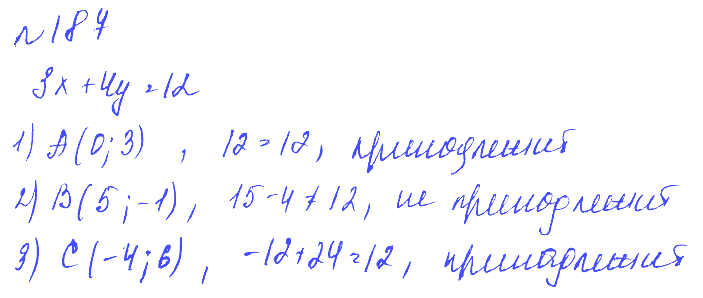 №187
3x + 4y = 12
1) A(0; 3), 12 = 12, принадлежит
2) B(5; -1), 15 - 4 ≠ 12, не принадлежит
3) C(-4; 6), -12 + 24 = 12, принадлежит